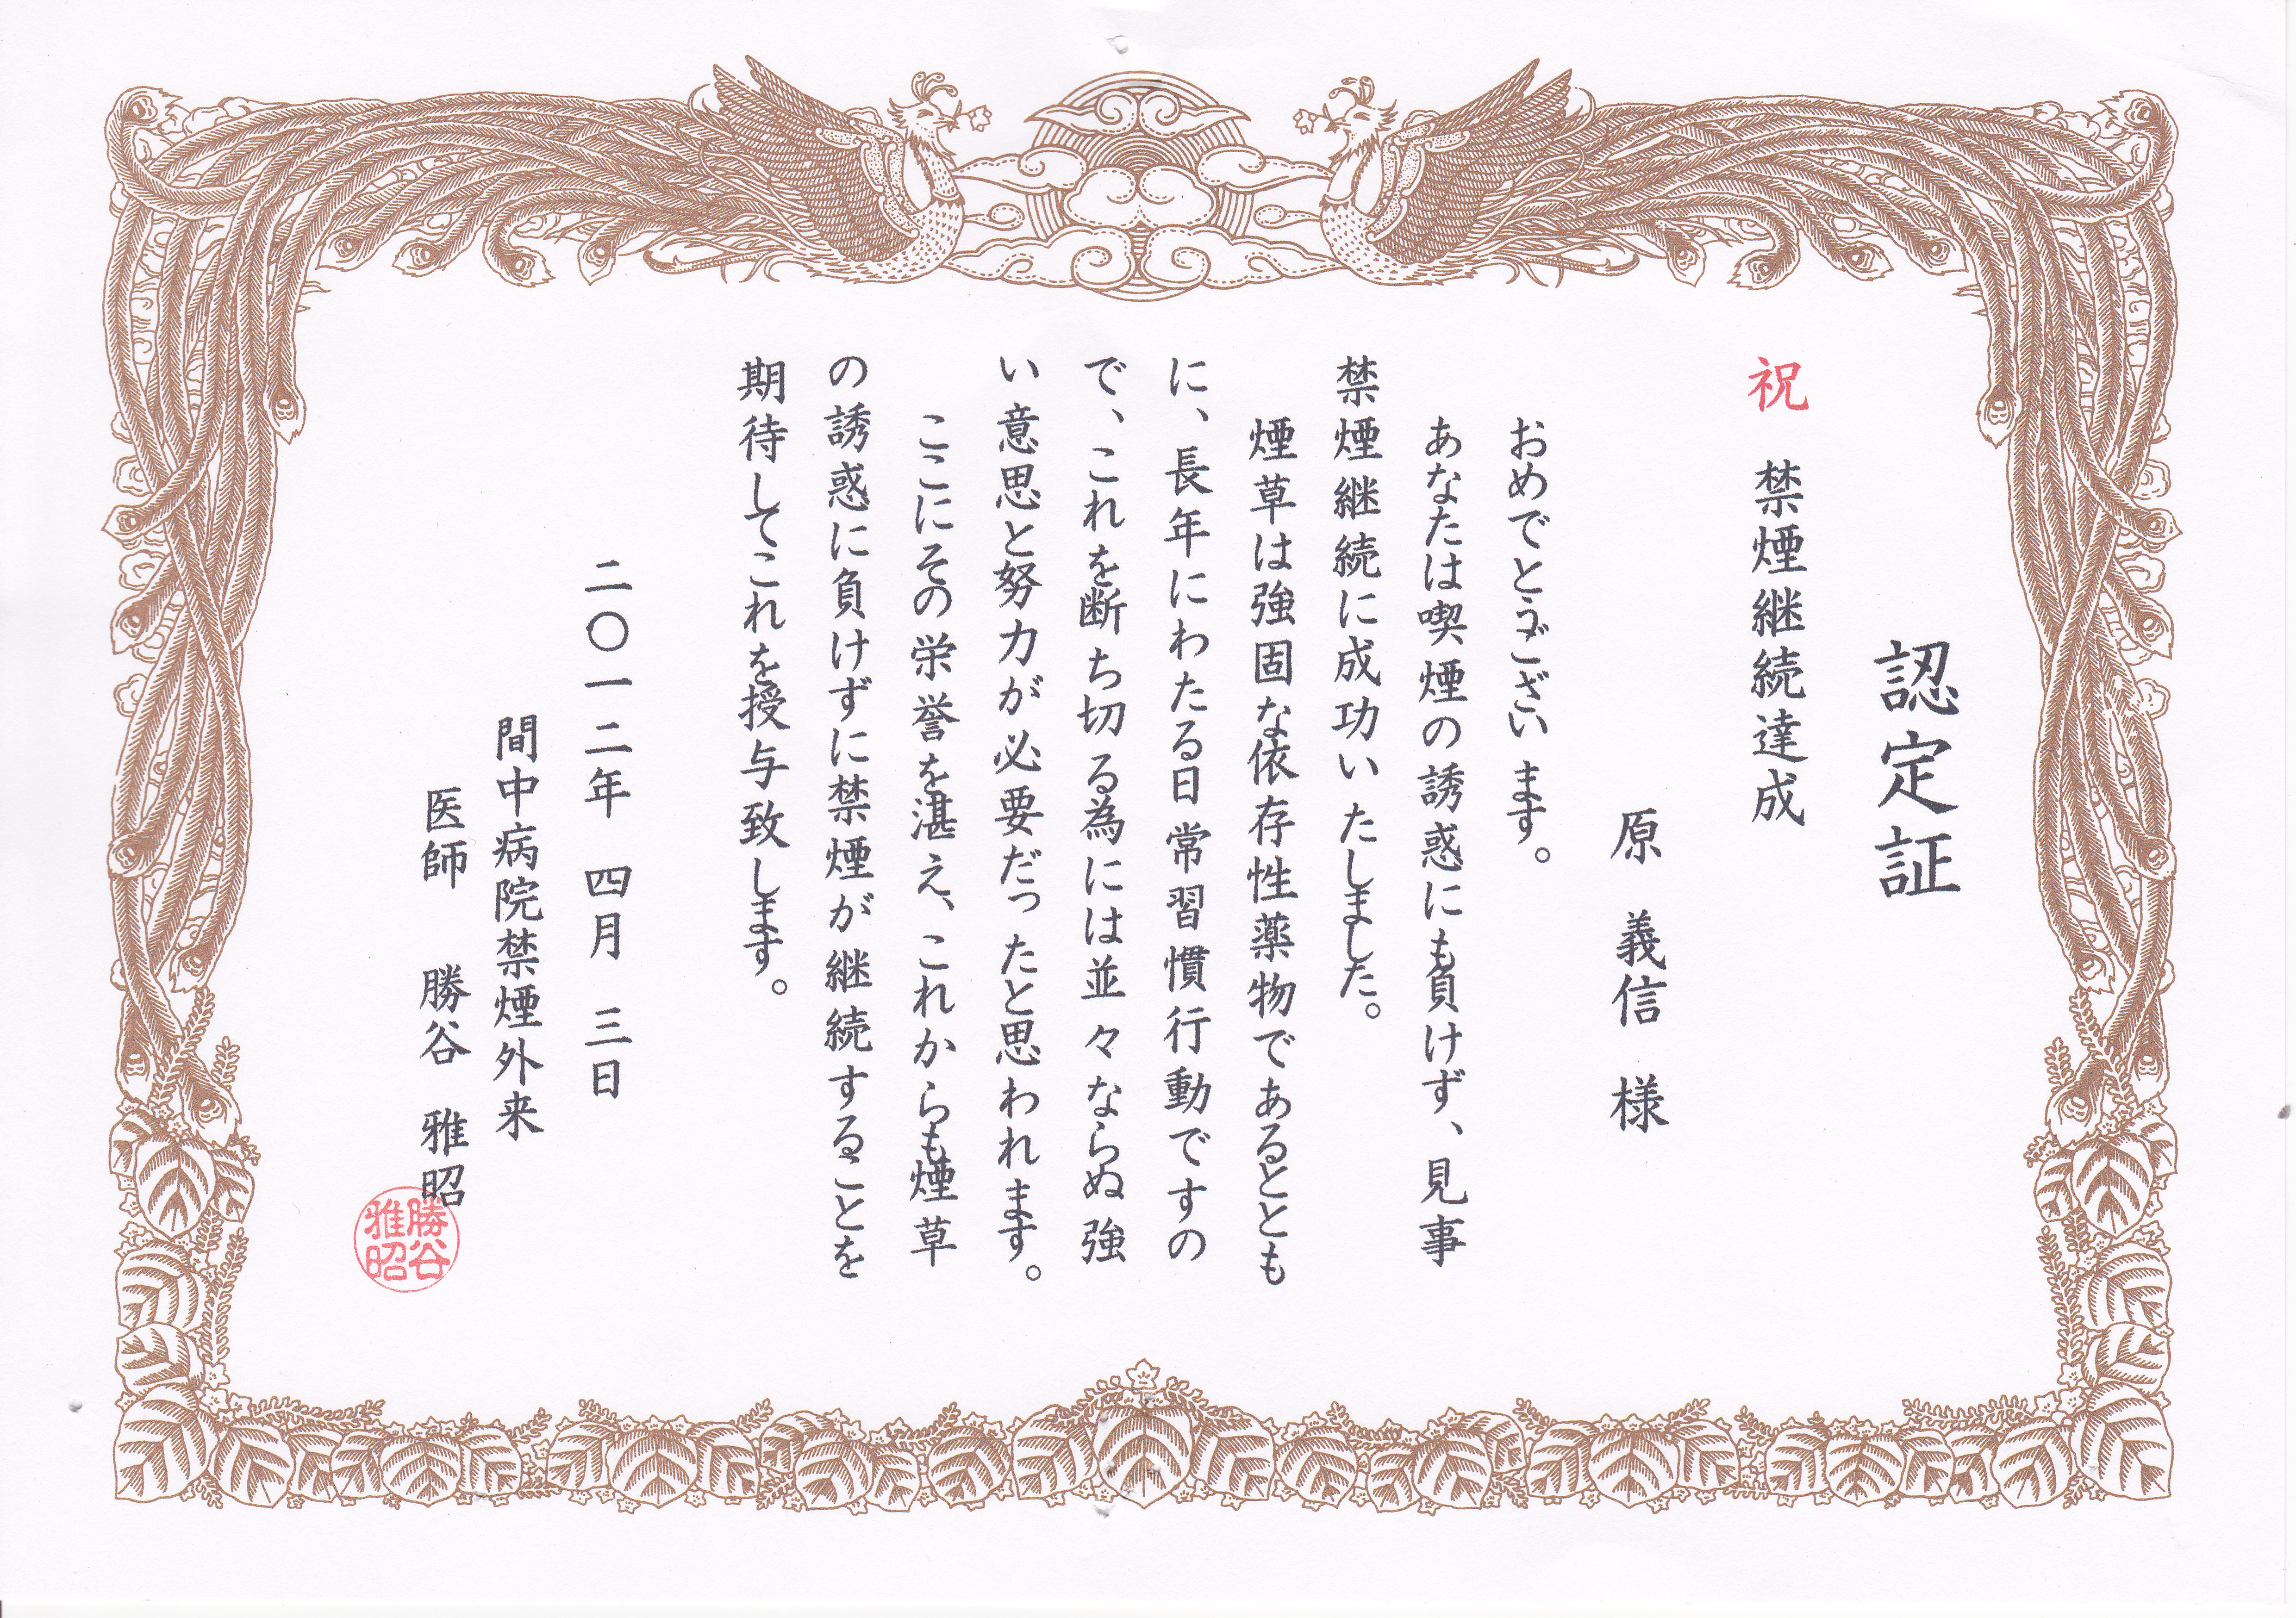 認定証
祝 禁煙継続達成
原 義信 様
おめでとうございます。
あなたは喫煙の誘惑にも負けず、見事
禁煙継続に成功いたしました。
煙草は強固な依存性薬物であるととも
に、長年にわたる日常習慣行動ですの
で、これを断ち切る為には並々ならぬ強
い意思と努力が必要だったと思われます。
ここにその栄誉を湛え、これからも煙草
の誘惑に負けずに禁煙が継続することを
期待してこれを授与致します。
二〇一二年 四月 三日
間中病院禁煙外来
医師 勝谷 雅昭
勝谷
雅昭